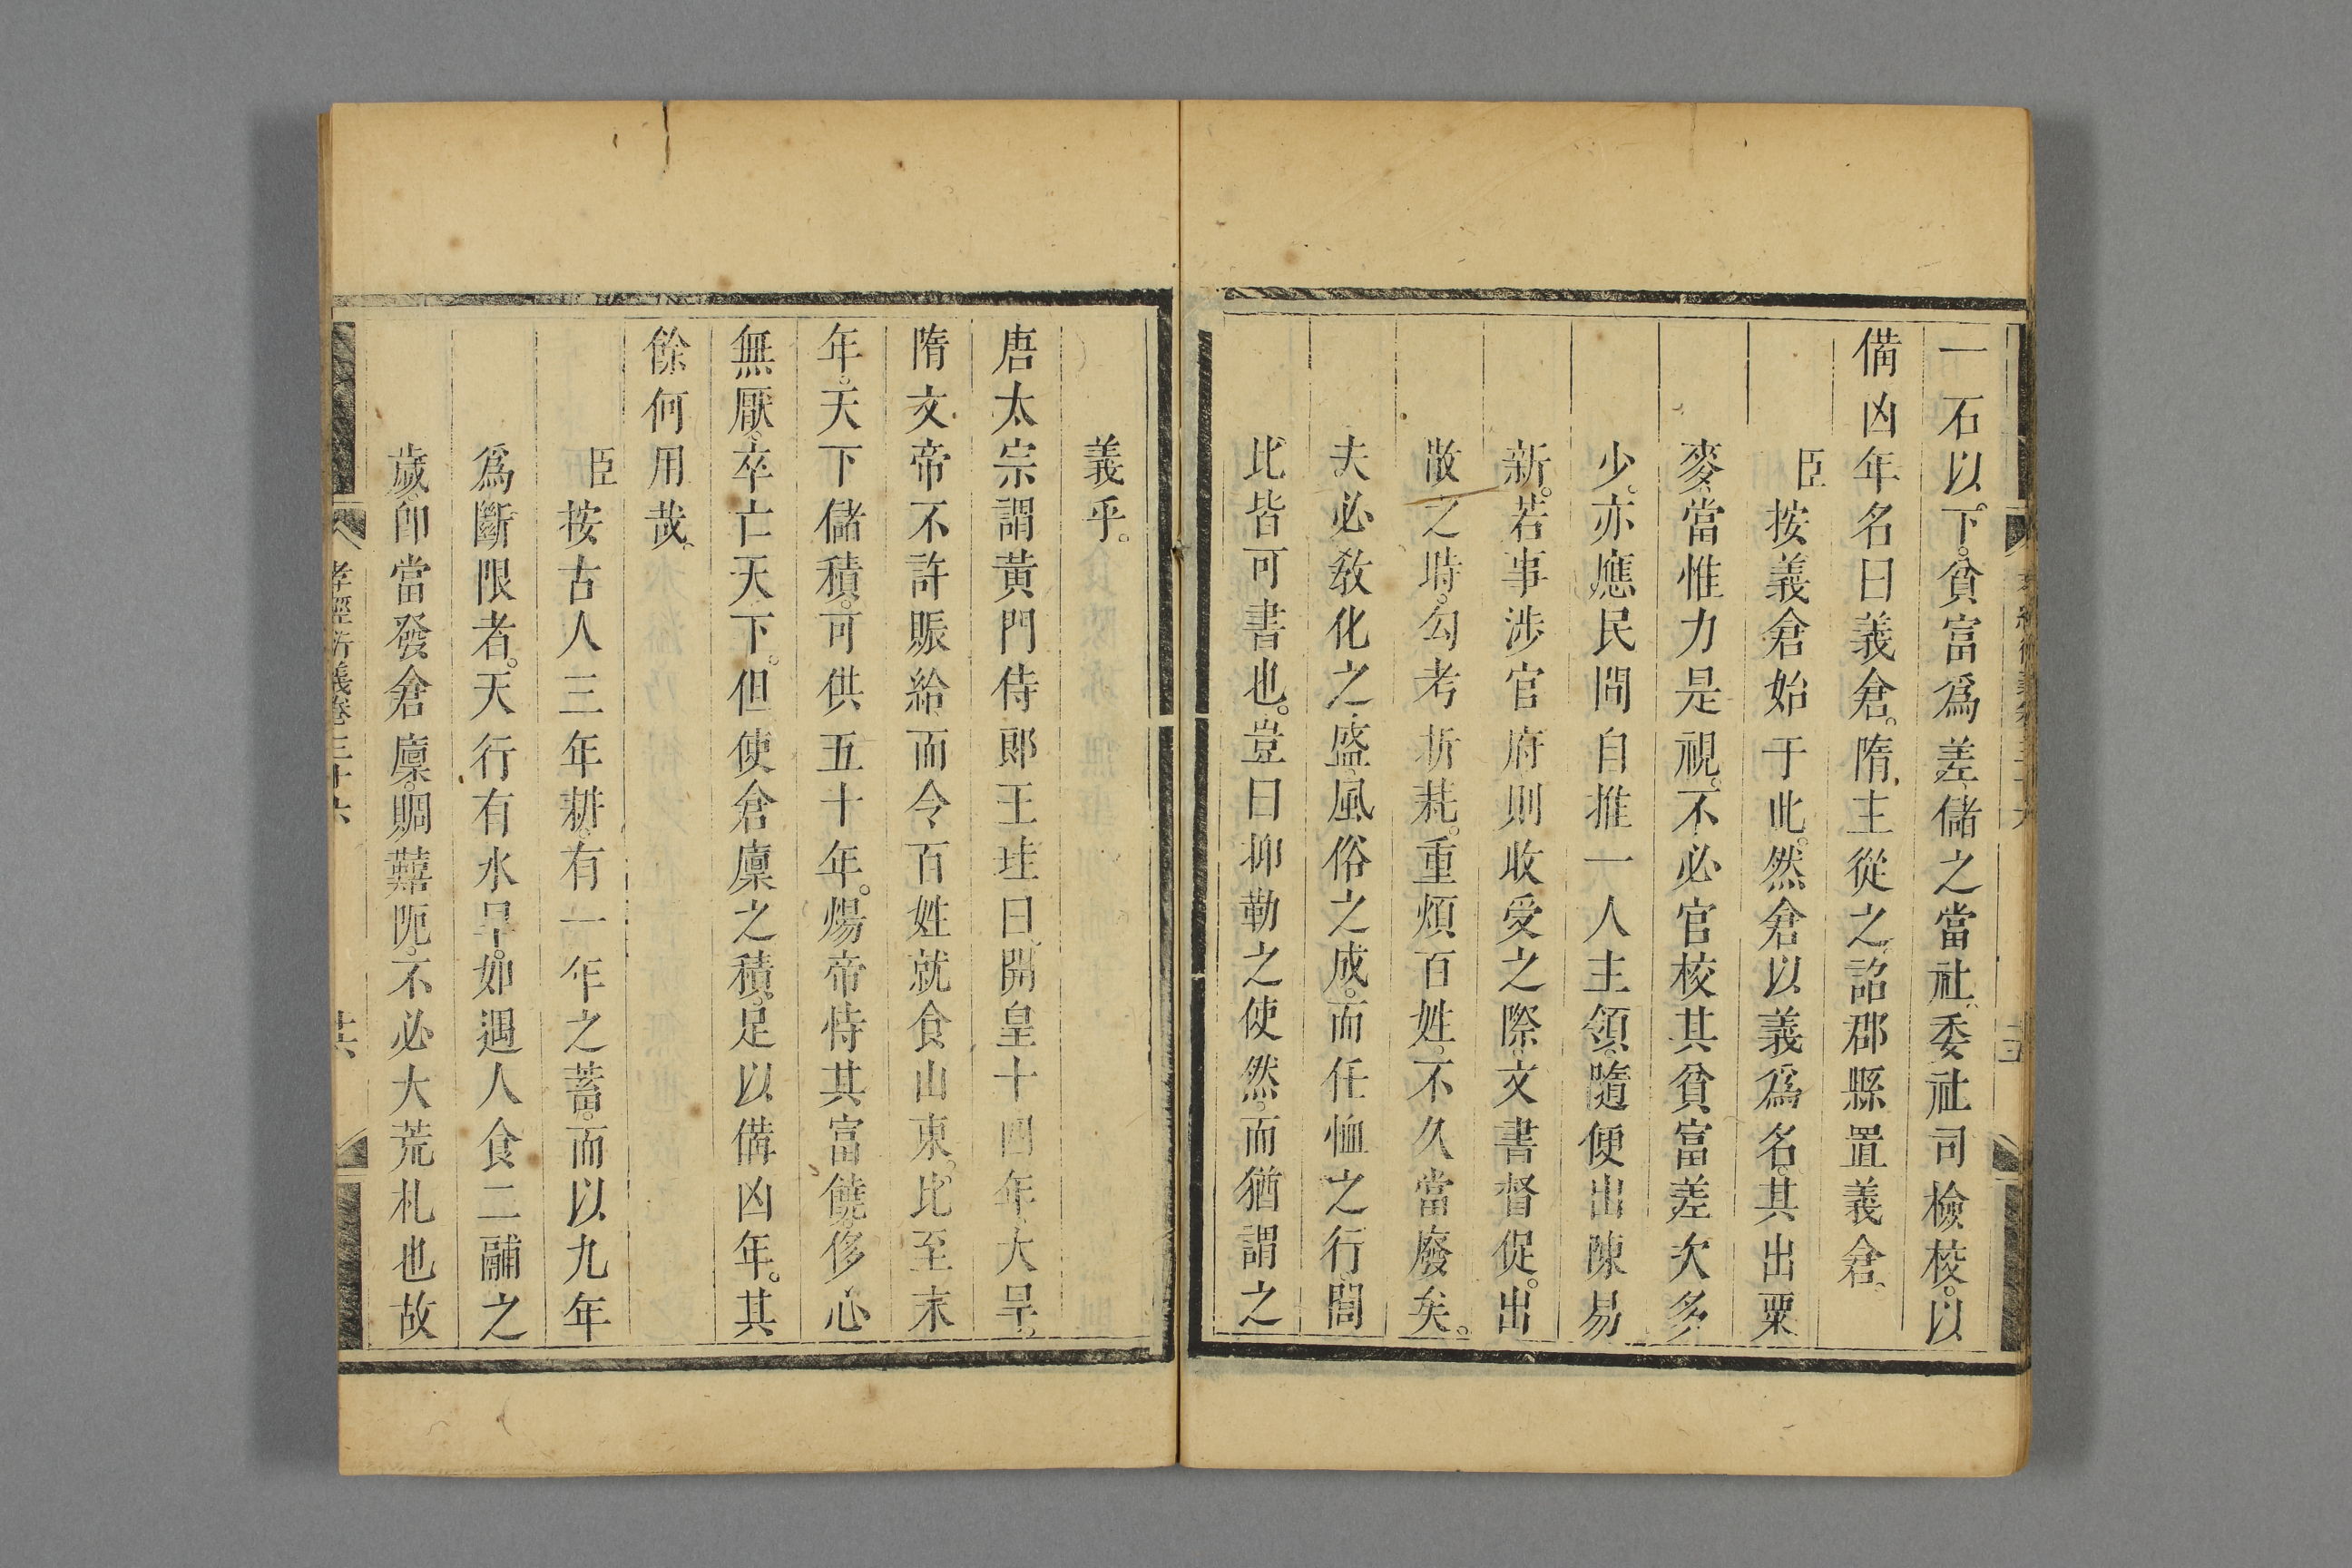 一石以下。貧富爲差、儲之當社、委社司檢校。以
備凶年名曰義倉。隋主從之、詔郡縣置義倉、
臣按義倉始于此。然倉以義爲名。其出粟
麥、當惟力是視。不必官校其貧富差次多
少。亦應民間自推一人主領。隨便出陳易
新。若事涉官府則收受之際、文書督促。出
散之時。勾考折耗。重煩百姓。不久當廢矣。
夫必教化之盛、風俗之成。而任恤之行、閭
比皆可書也。豈曰抑勒之使然。而猶謂之
義乎。
唐太宗謂黃門侍郎王珪曰、開皇十四年大旱、
隋文帝不許賑給、而令百姓就食山東。比至末
年。天下儲積。可供五十年。煬帝恃其富饒。侈心
無厭。卒亡天下。但使倉廩之積。足以備凶年。其
餘何用哉。
臣按古人三年耕。有一年之蓄。而以九年
爲斷限者。天行有水旱。如遇人食二鬴之
歲、卽當發倉廩。賙囏阨。不必大荒札也故
孝經衍義卷三十六